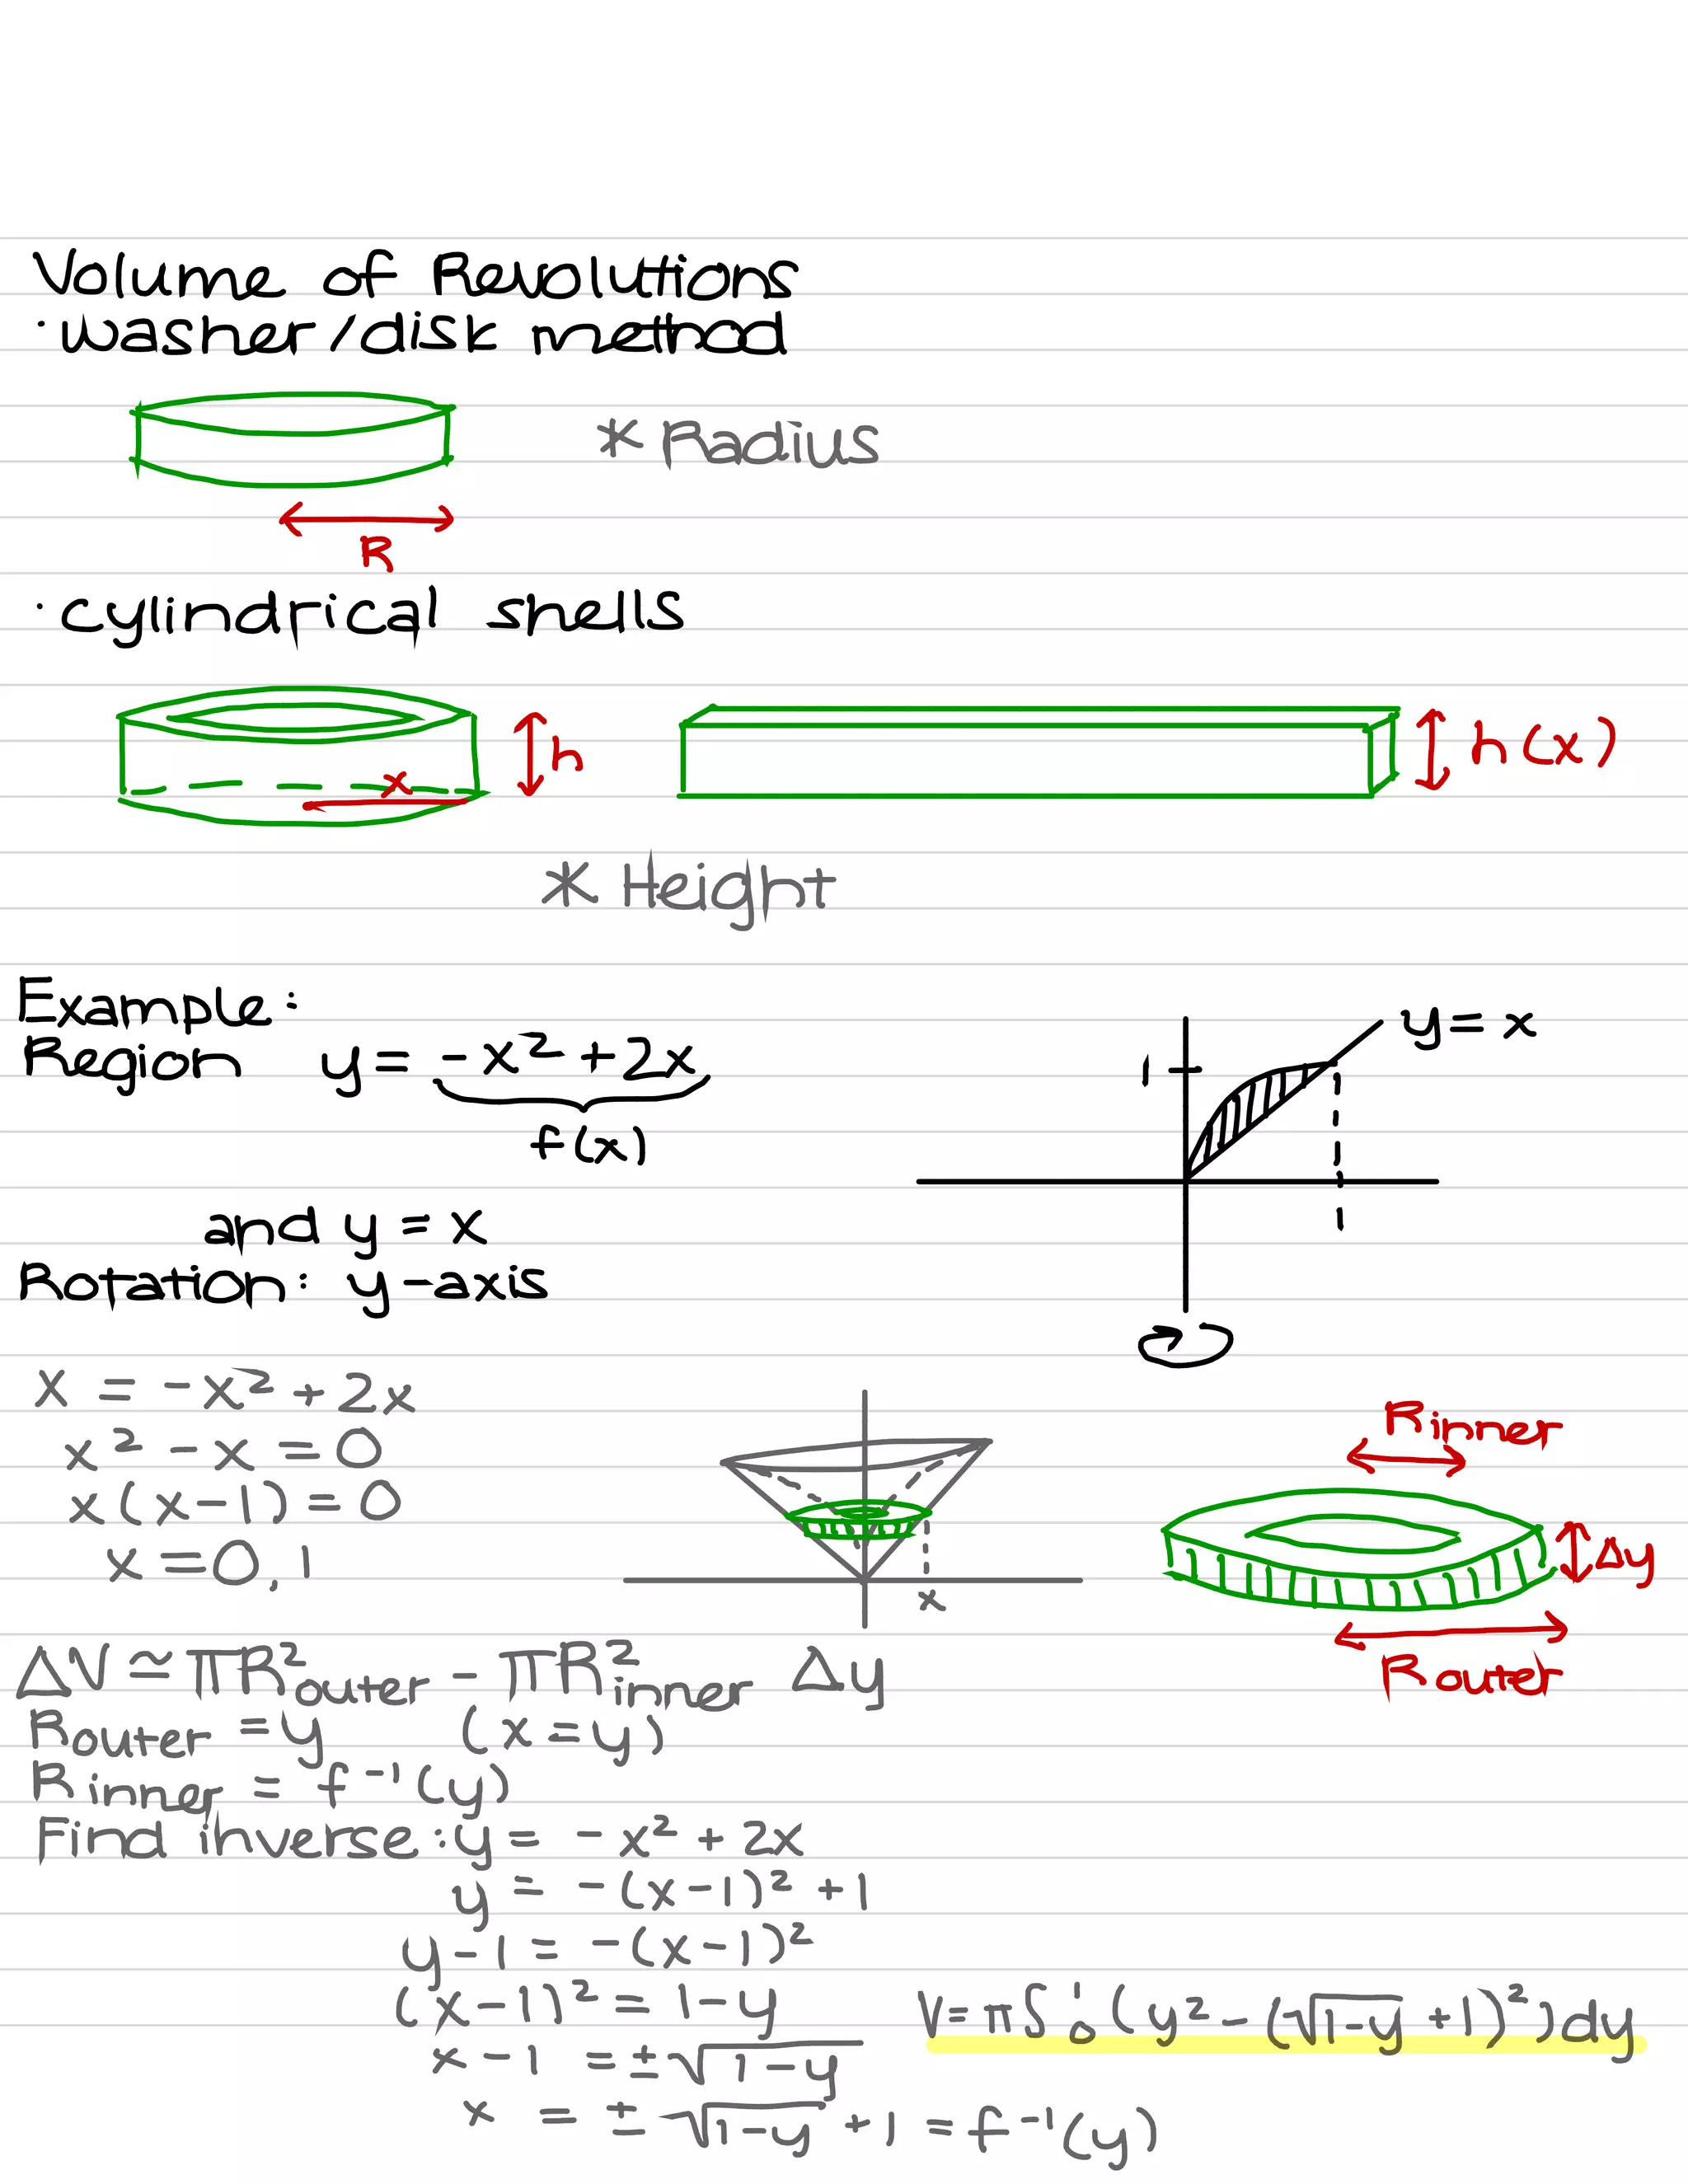 Volume of Revolutions
· Washer/disk method
* Radius
R
· cylindrical shells
h
x
h(x)
* Height
Example:
Region y = -x² + 2x
f(x)
and y = x
Rotation: y-axis
y = x
1
1
x = -x² + 2x
x² - x = 0
x(x-1) = 0
x = 0, 1
x
Rinner
Δy
Router
ΔV ≃ πR²outer - πR²inner Δy
Router = y (x = y)
Rinner = f⁻¹(y)
Find inverse: y = -x² + 2x
y = -(x-1)² + 1
y-1 = -(x-1)²
(x-1)² = 1-y
x-1 = ±√1-y
x = ±√1-y +1 = f⁻¹(y)
V = π∫¹₀ (y² - (√1-y +1)²)dy